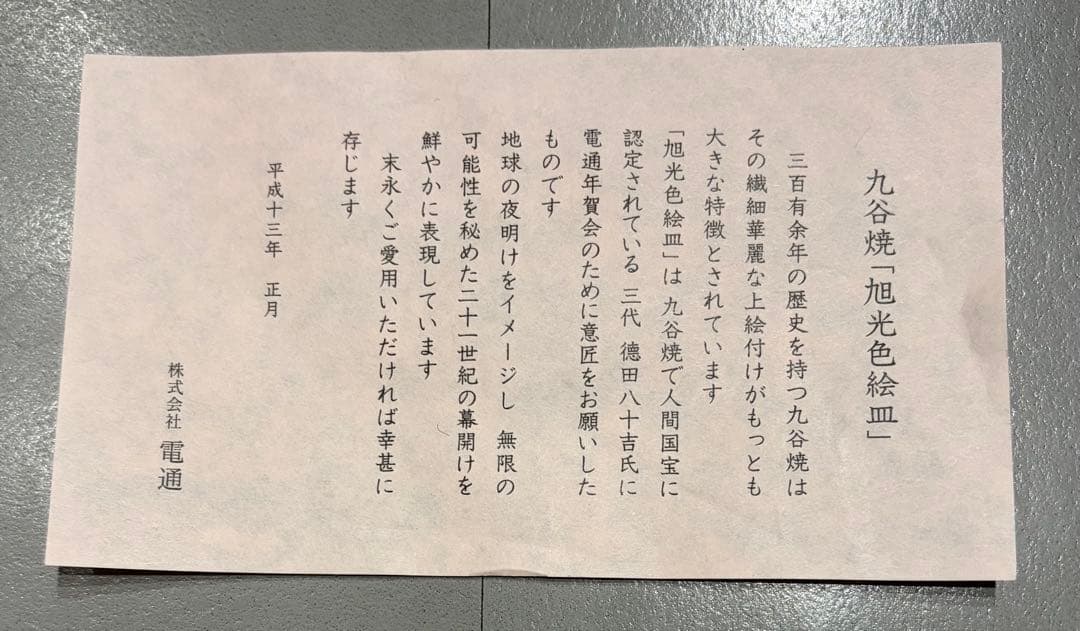 九谷焼「旭光色絵皿」
三百有余年の歴史を持つ九谷焼は
その繊細華麗な上絵付けがもっとも
大きな特徴とされています
「旭光色絵皿」は 九谷焼で人間国宝に
認定されている 三代 德田八十吉氏に
電通年賀会のために意匠をお願いした
ものです
地球の夜明けをイメージし 無限の
可能性を秘めた二十一世紀の幕開けを
鮮やかに表現しています
末永くご愛用いただければ幸甚に
存じます
平成十三年 正月
株式会社 電通